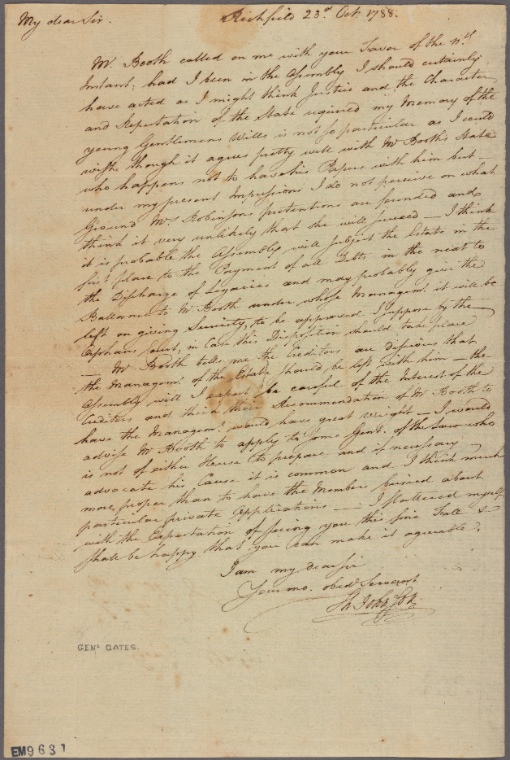 My dear Sir. Richfield 23.d Oct. 1788.
Mr. Booth called on me with your Favor of the
Instant; had I been in the Assembly I should certainly
have acted as I might think Justice and the Character
and Reputation of the State required my Memory of the
young Gentlemans Will is not so particular as I could
wish though it agrees pretty well with Mr Booth's State
who happens not to have his Papers with him but
under my present Impressions I do not perceive on what
Ground Mrs Robinsons pretentions are founded and
think it very unlikely that she will succeed — I think
it is probable the Assembly will subject the Estate in the
first place to the Payment of all Debts in the next to
the Discharge of Legacies and may probably give the
Ballance to Mr Booth under whose Managemt. it will be
left on giving Security, to be approved I suppose by the
Orphans Court, in Case this Disposition should take place
— Mr. Booth tells me the Creditors are desirous that
the Managemt. of the Estate should be left with him — the
Assembly will I expect be careful of the Interest of the
Creditors and think their Recommendation of Mr Booth to
have the Managemt. would have great weight — I would
advise Mr Booth to apply to some Gent. of the Law who
is not of either House to prepare and if necessary
advocate his Cause it is common and I think much
more proper than to have the Members burned about
particular private Applications — I flattered myself
with the Expectation of seeing you this fine Fall &
shall be happy that you can make it agreeable.
I am my dear sir
Your mo. obed. Servant
Th Johnson
GENL GATES.
EM9681